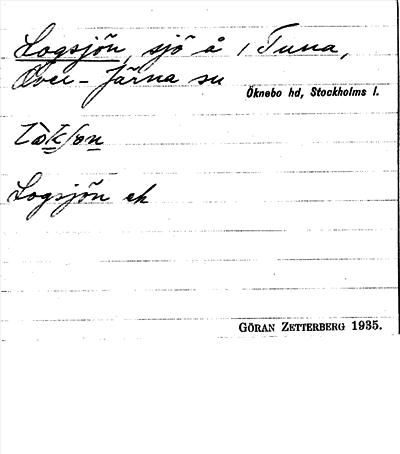 Logsjön, sjö å / Tuna,
Över-Järna sn
Öknebo hd, Stockholms l.
Logsjön ek
GÖRAN ZETTERBERG 1935.